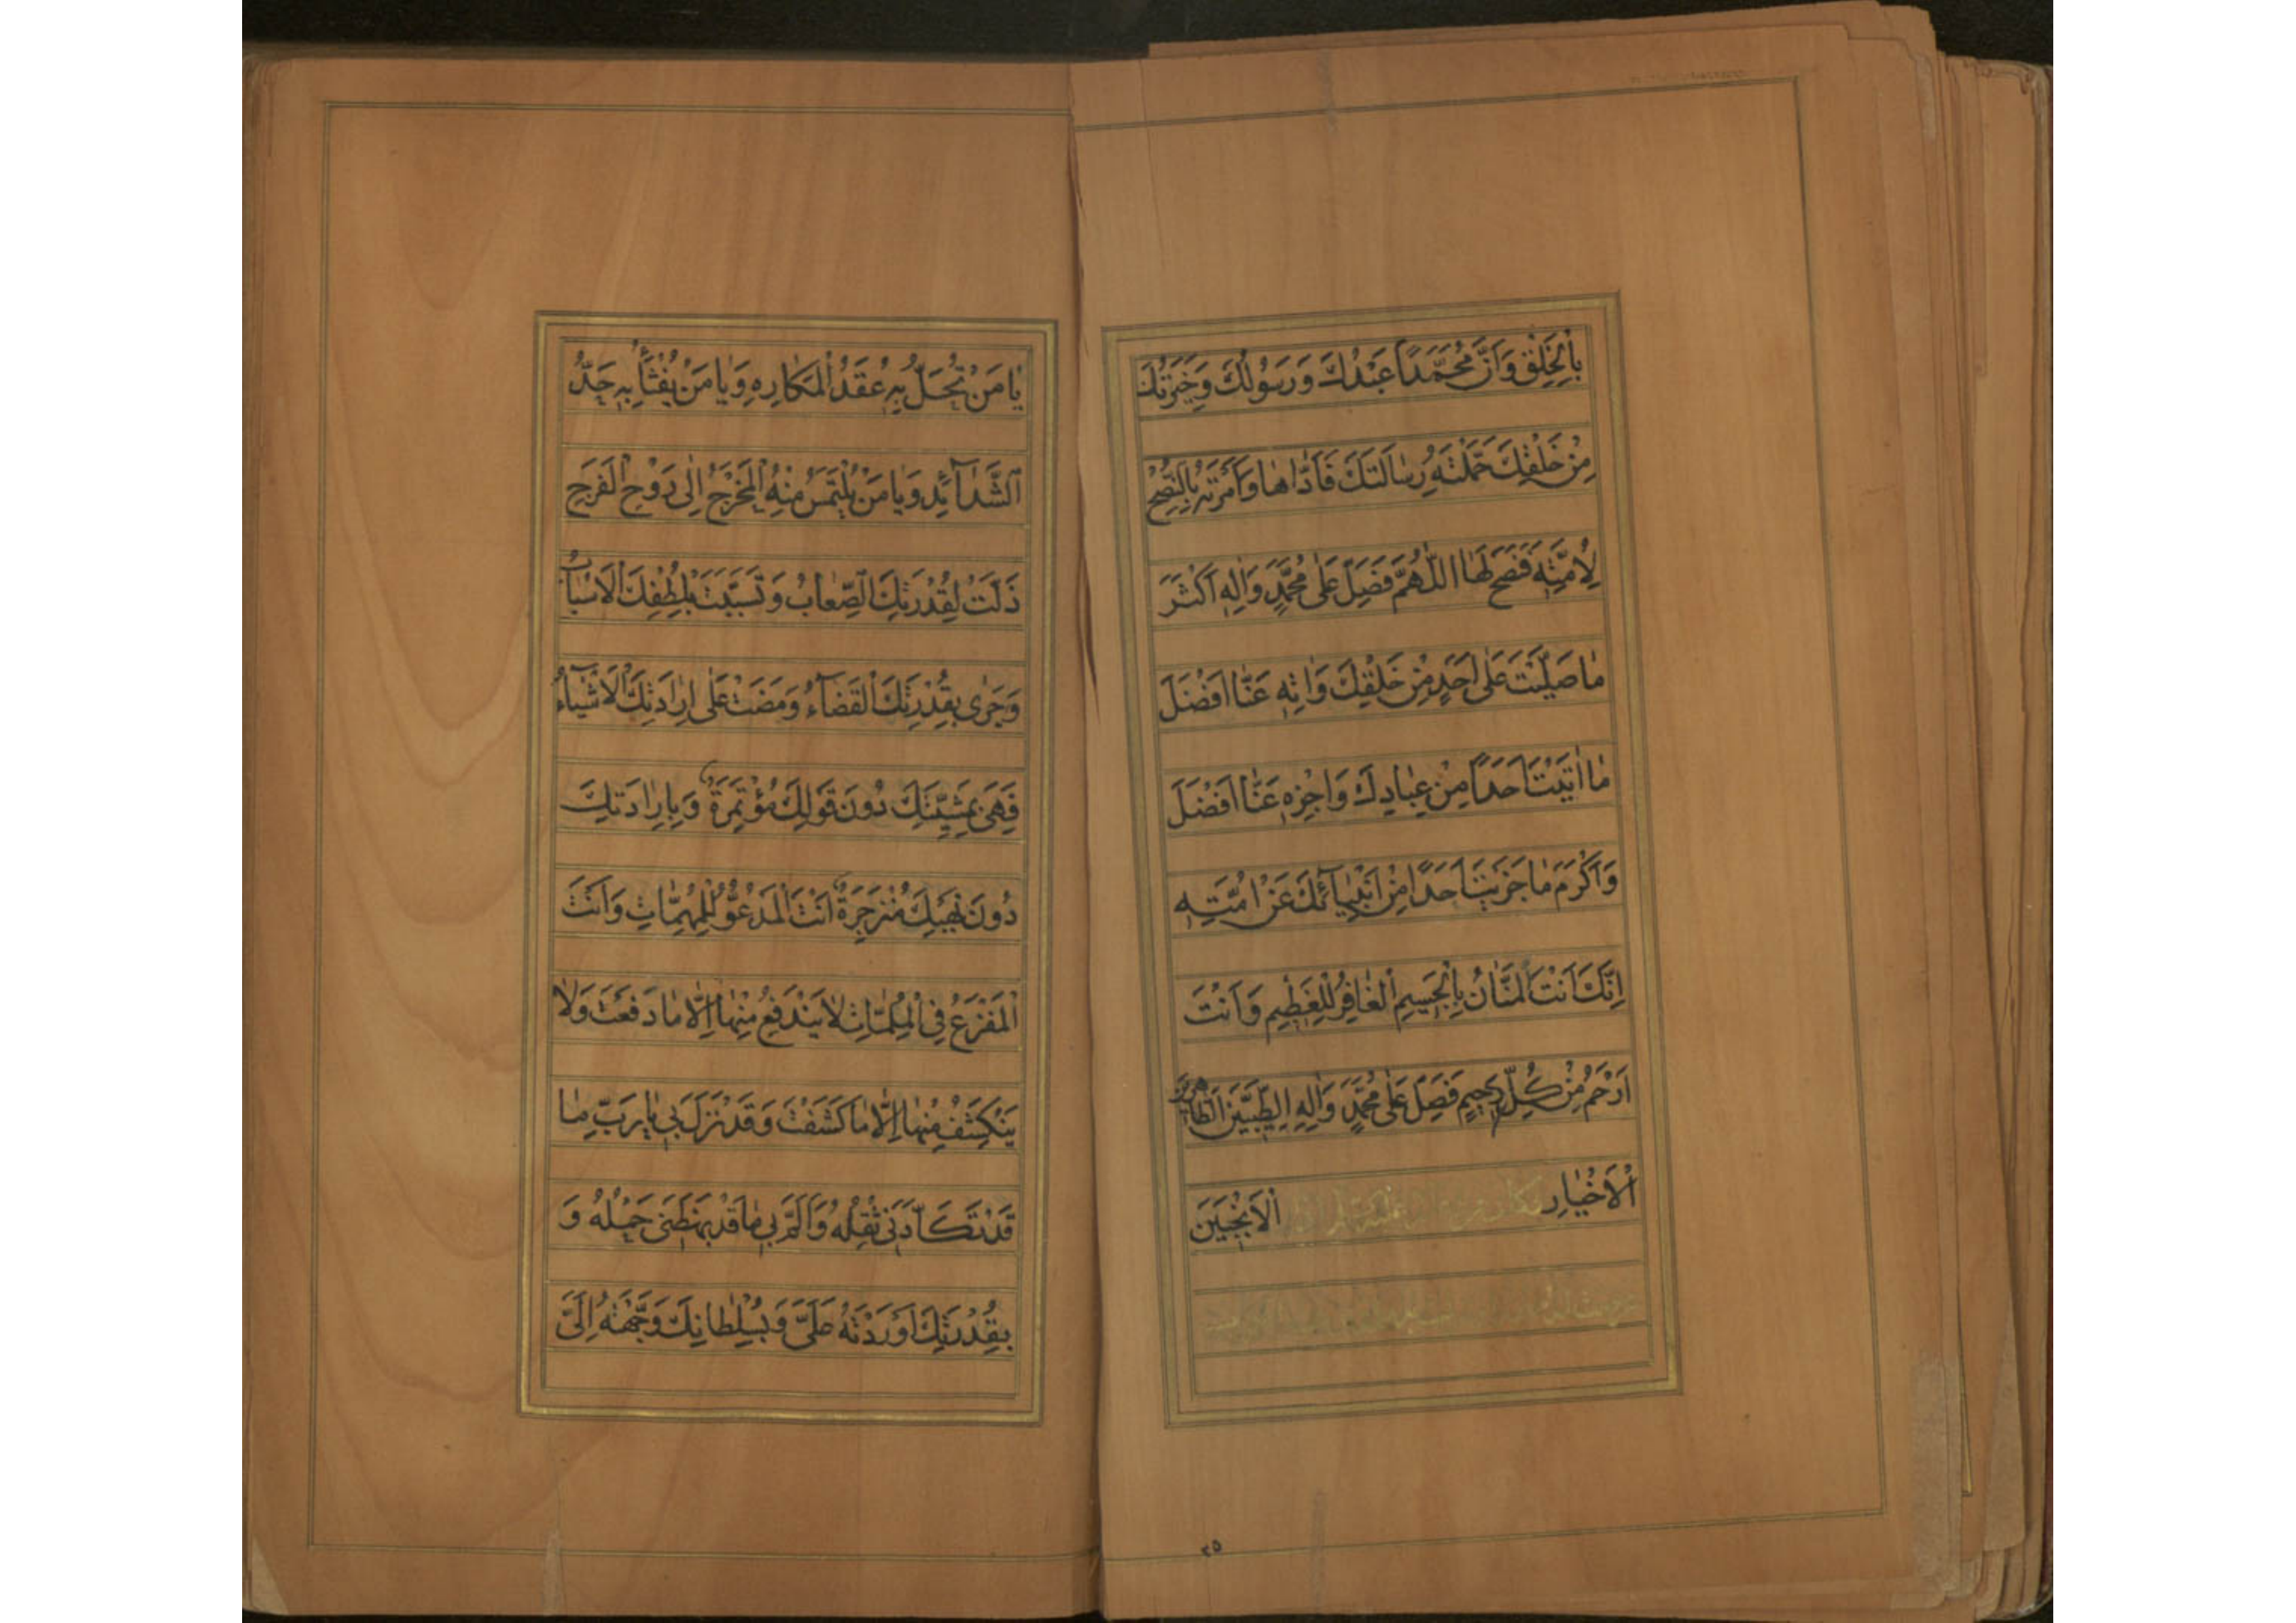 بِالْخَلْقِ وَاَنَّ مُحَمَّدًا عَبْدُكَ وَرَسُولُكَ وَخِيَرَتُكَ
مِنْ خَلْقِكَ حَمَّلْتَهُ رِسَالَتَكَ فَاَدَّاهَا وَاَمَرْتَهُ بِالنُّصْحِ
لِاُمَّتِهِ فَنَصَحَ لَهَا اَللّٰهُمَّ فَصَلِّ عَلٰى مُحَمَّدٍ وَاٰلِهِ اَكْثَرَ
مَا صَلَّيْتَ عَلٰى اَحَدٍ مِنْ خَلْقِكَ وَاٰتِهِ عَنَّا اَفْضَلَ
مَا اٰتَيْتَ اَحَدًا مِنْ عِبَادِكَ وَاجْزِهِ عَنَّا اَفْضَلَ
وَاَكْرَمَ مَا جَزَيْتَ اَحَدًا مِنْ اَنْبِيَآئِكَ عَنْ اُمَّتِهِ
اِنَّكَ اَنْتَ الْمَنَّانُ بِالْجَسِيمِ الْغَافِرُ لِلْعَظِيمِ وَاَنْتَ
اَرْحَمُ مِنْ كُلِّ رَحِيمٍ فَصَلِّ عَلٰى مُحَمَّدٍ وَاٰلِهِ الطَّيِّبِينَ الطَّاهِرِينَ
الْاَخْيَارِ الْاَنْجَبِينَ
يَا مَنْ تُحَلُّ بِهِ عُقَدُ الْمَكَارِهِ وَيَا مَنْ يُفْثَأُ بِهِ حَدُّ
الشَّدَآئِدِ وَيَا مَنْ يُلْتَمَسُ مِنْهُ الْمَخْرَجُ اِلٰى رَوْحِ الْفَرَجِ
ذَلَّتْ لِقُدْرَتِكَ الصِّعَابُ وَتَسَبَّبَتْ بِلُطْفِكَ الْاَسْبَابُ
وَجَرٰى بِقُدْرَتِكَ الْقَضَآءُ وَمَضَتْ عَلٰى اِرَادَتِكَ الْاَشْيَآءُ
فَهِيَ بِمَشِيَّتِكَ دُونَ قَوْلِكَ مُؤْتَمِرَةٌ وَبِاِرَادَتِكَ
دُونَ نَهْيِكَ مُنْزَجِرَةٌ اَنْتَ الْمَدْعُوُّ لِلْمُهِمَّاتِ وَاَنْتَ
الْمَفْزَعُ فِي الْمُلِمَّاتِ لَا يَنْدَفِعُ مِنْهَا اِلَّا مَا دَفَعْتَ وَلَا
يَنْكَشِفُ مِنْهَا اِلَّا مَا كَشَفْتَ وَقَدْ نَزَلَ بِي يَا رَبِّ مَا
قَدْ تَكَأَّدَنِي ثِقْلُهُ وَاَلَمَّ بِي مَا قَدْ بَهَظَنِي حَمْلُهُ وَ
بِقُدْرَتِكَ اَوْرَدْتَهُ عَلَيَّ وَبِسُلْطَانِكَ وَجَّهْتَهُ اِلَيَّ